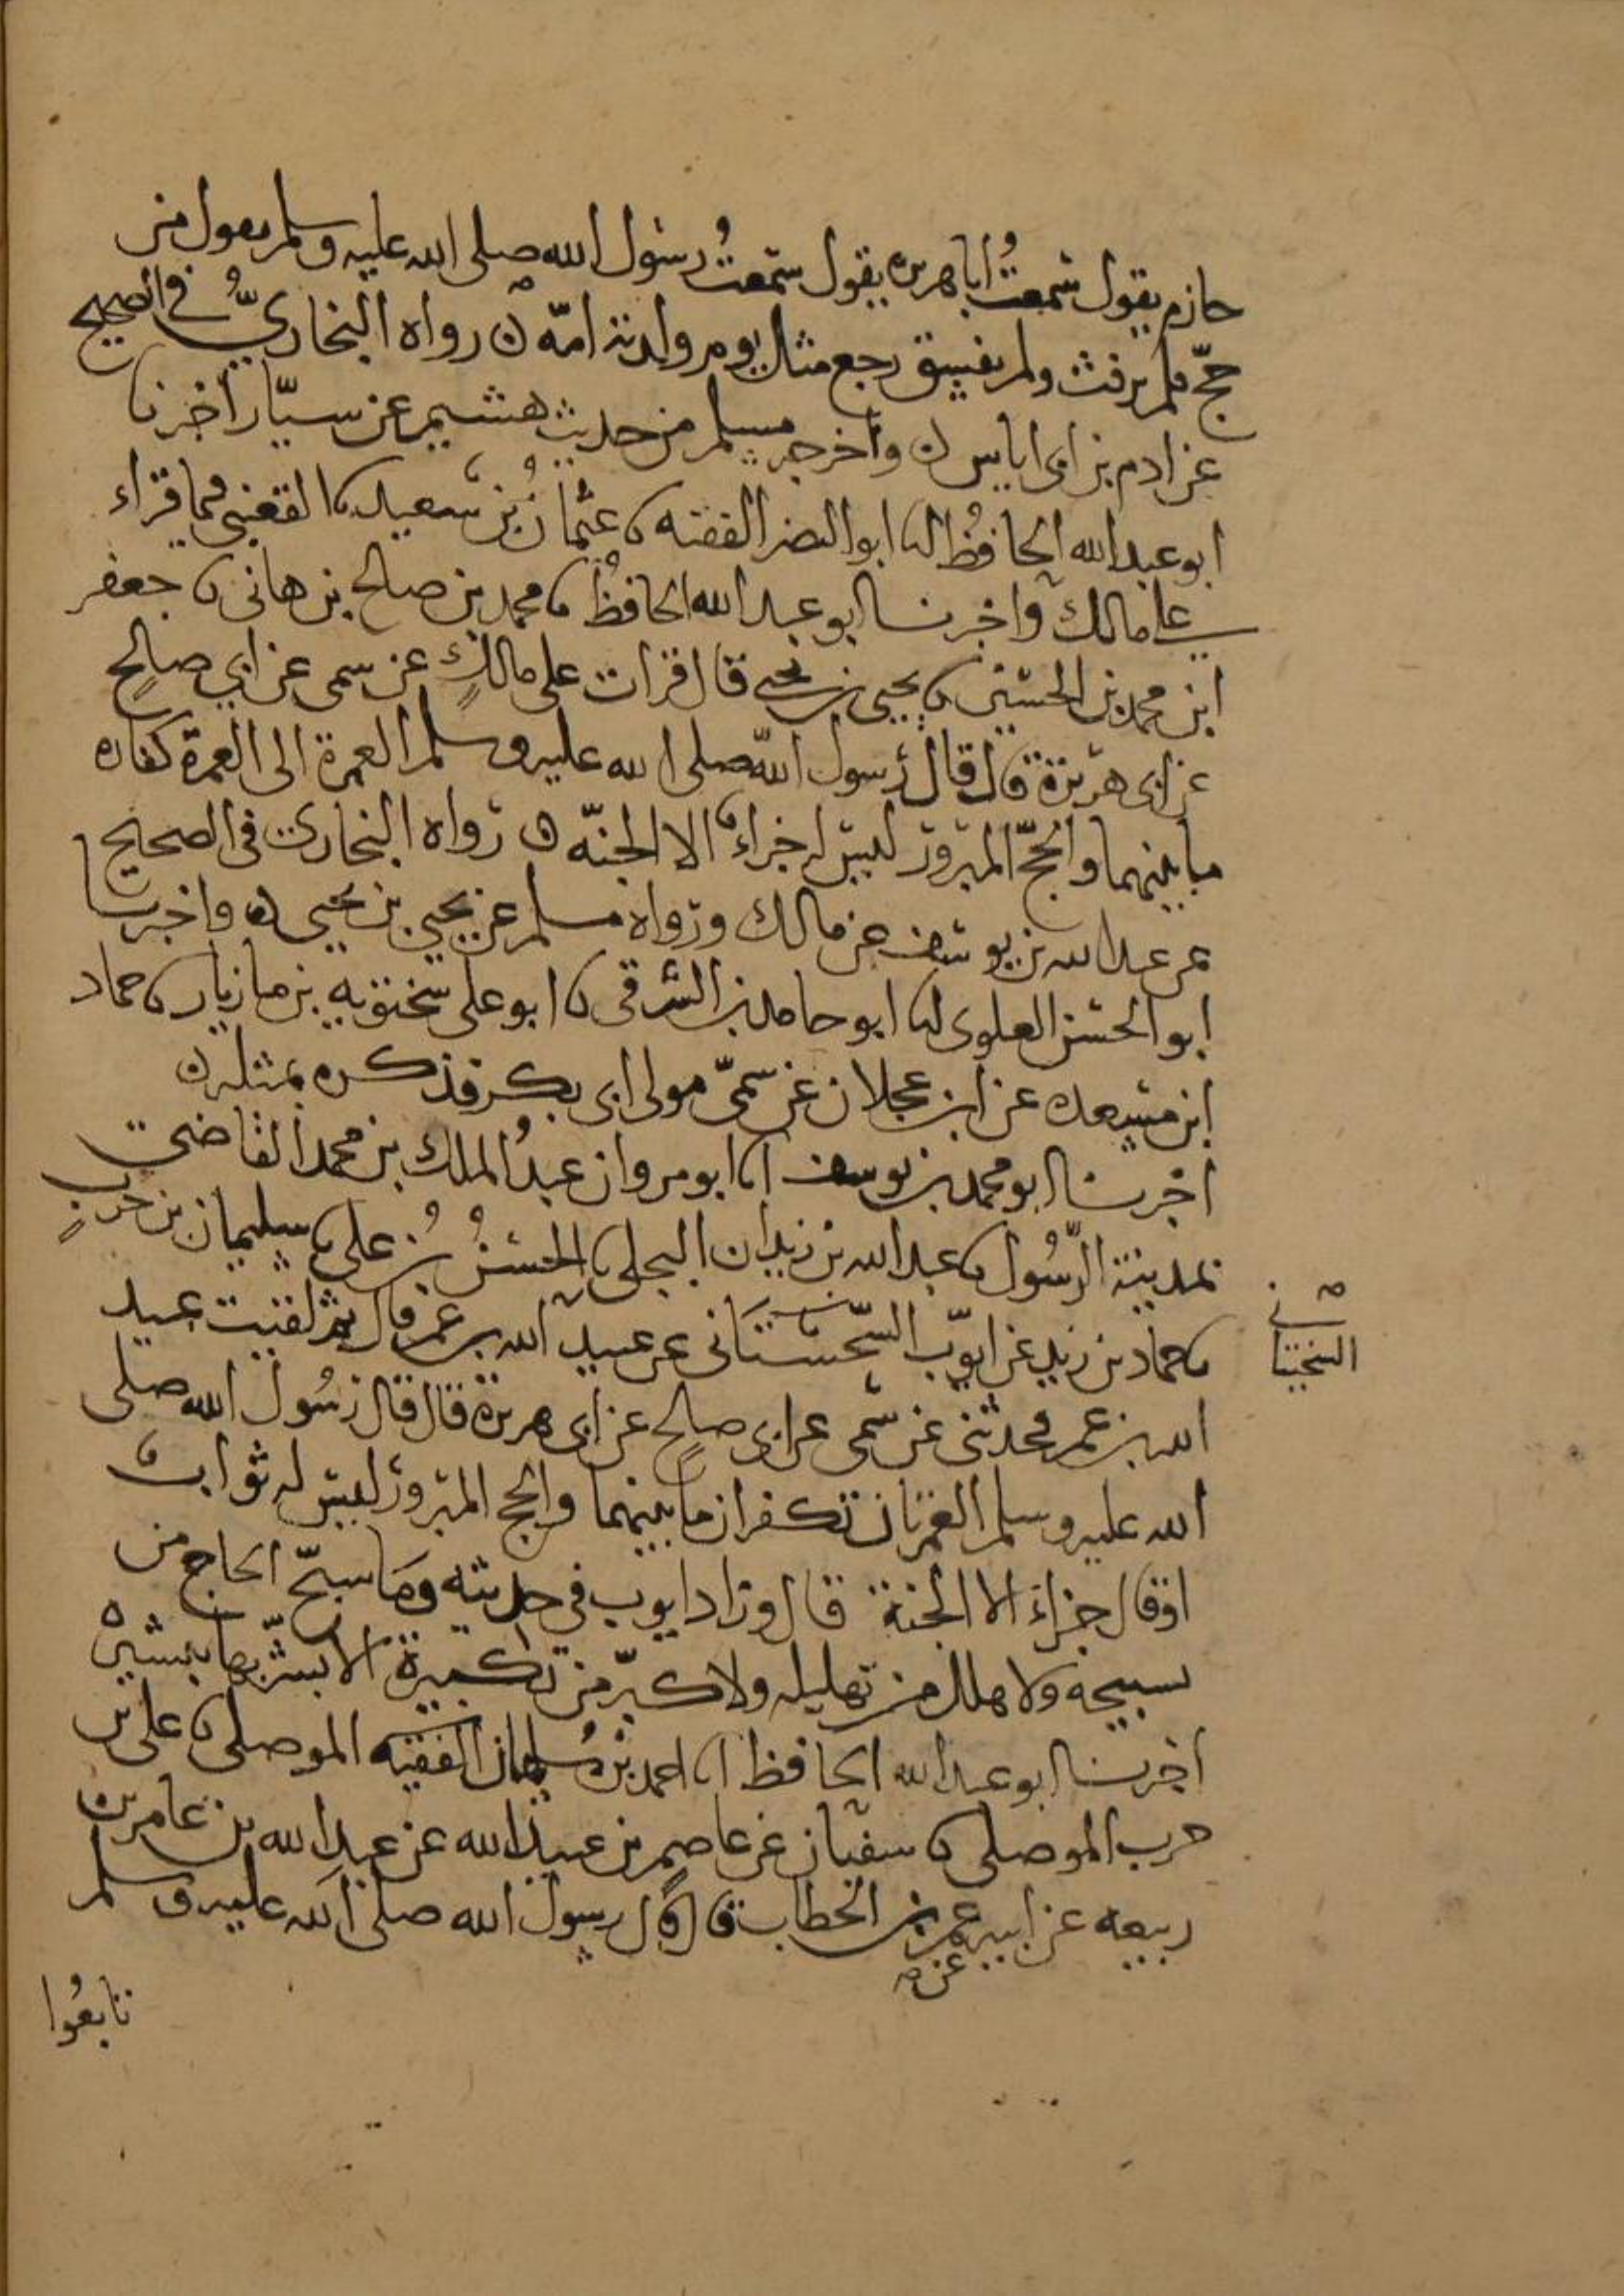 حازم يقول سمعتُ أبا هريره يقول سمعتُ رسول الله صلى الله عليه وسلم يقول من
حجّ فلم يرفث ولم يفسق رجع مثل يوم ولدته امّه ن رواه البخاريُّ في الصحيح
عن ادم بن ابى اياس ن وأخرجه مسلم من حديث هشيم عن سيّار أخبرنا
ابو عبد الله الحافظُ انا ابو النضر الفقيه نا عثمانُ بن سعيد نا القعنبي فيما قراء
على مالك وأخبرنا ابو عبد الله الحافظُ نا محمد بن صالح بن هانى نا جعفر
ابن محمد بن الحسين نا يحيى بن يحيى قال قرات على مالكٍ عن سمى عن ابي صالحٍ
عن ابى هريرة قال قال رسول الله صلى الله عليه وسلم العمرة الى العمرة كفاره
ما بينهما والحجّ المبرور ليس له جزاءٌ الا الجنّه ن رواه البخارى فى الصحيح
عن عبد الله بن يوسف عن مالك ورواه مسلم عن يحيى بن يحيى ن واخبرنا
ابو الحسن العلوى انا ابو حامد بن الشرقى نا ابو على سختويه بن مازيار نا حماد
ابن مسعده عن ابن عجلان عن سمىّ مولى ابى بكر فذكره بمثله ن
اخبرنا ابو محمد بن يوسف انا ابو مروان عبدُ الملك بن محمد القاضى
بمدينة الرّسُول نا عبد الله بن زيدان البجلى نا الحسنُ بنُ على نا سليمان بن حربٍ
نا حماد بن زيد عن ايوّب السّجستَانى عن عبيد الله بن عمر قال ثم لقيت عبيد
السختيانى
الله بن عمر فحدثنى عن سُمى عن ابى صالح عن ابى هريرة قال قال رسُول الله صلى
الله عليه وسلم العمرتان تكفران ما بينهما والحج المبرور ليس له ثواب
اوقال جزاء الا الجنة قال وزاد ايوب فى حديثه وما سبّح الحاج من
تسبيحة ولا هلل من تهليله ولا كبّر من تكبيرة الا يبشّر بها تبشيره
اخبرنا ابو عبد الله الحافظ انا احمد بن سُليمان الفقيه الموصلى نا على بن
حرب الموصلى نا سفيان عن عاصم بن عبيد الله عن عبد الله بن عامر بن
ربيعه عن ابيه عمر بن الخطاب قال قال رسول الله صلى الله عليه وسلم
عن
تابعُوا